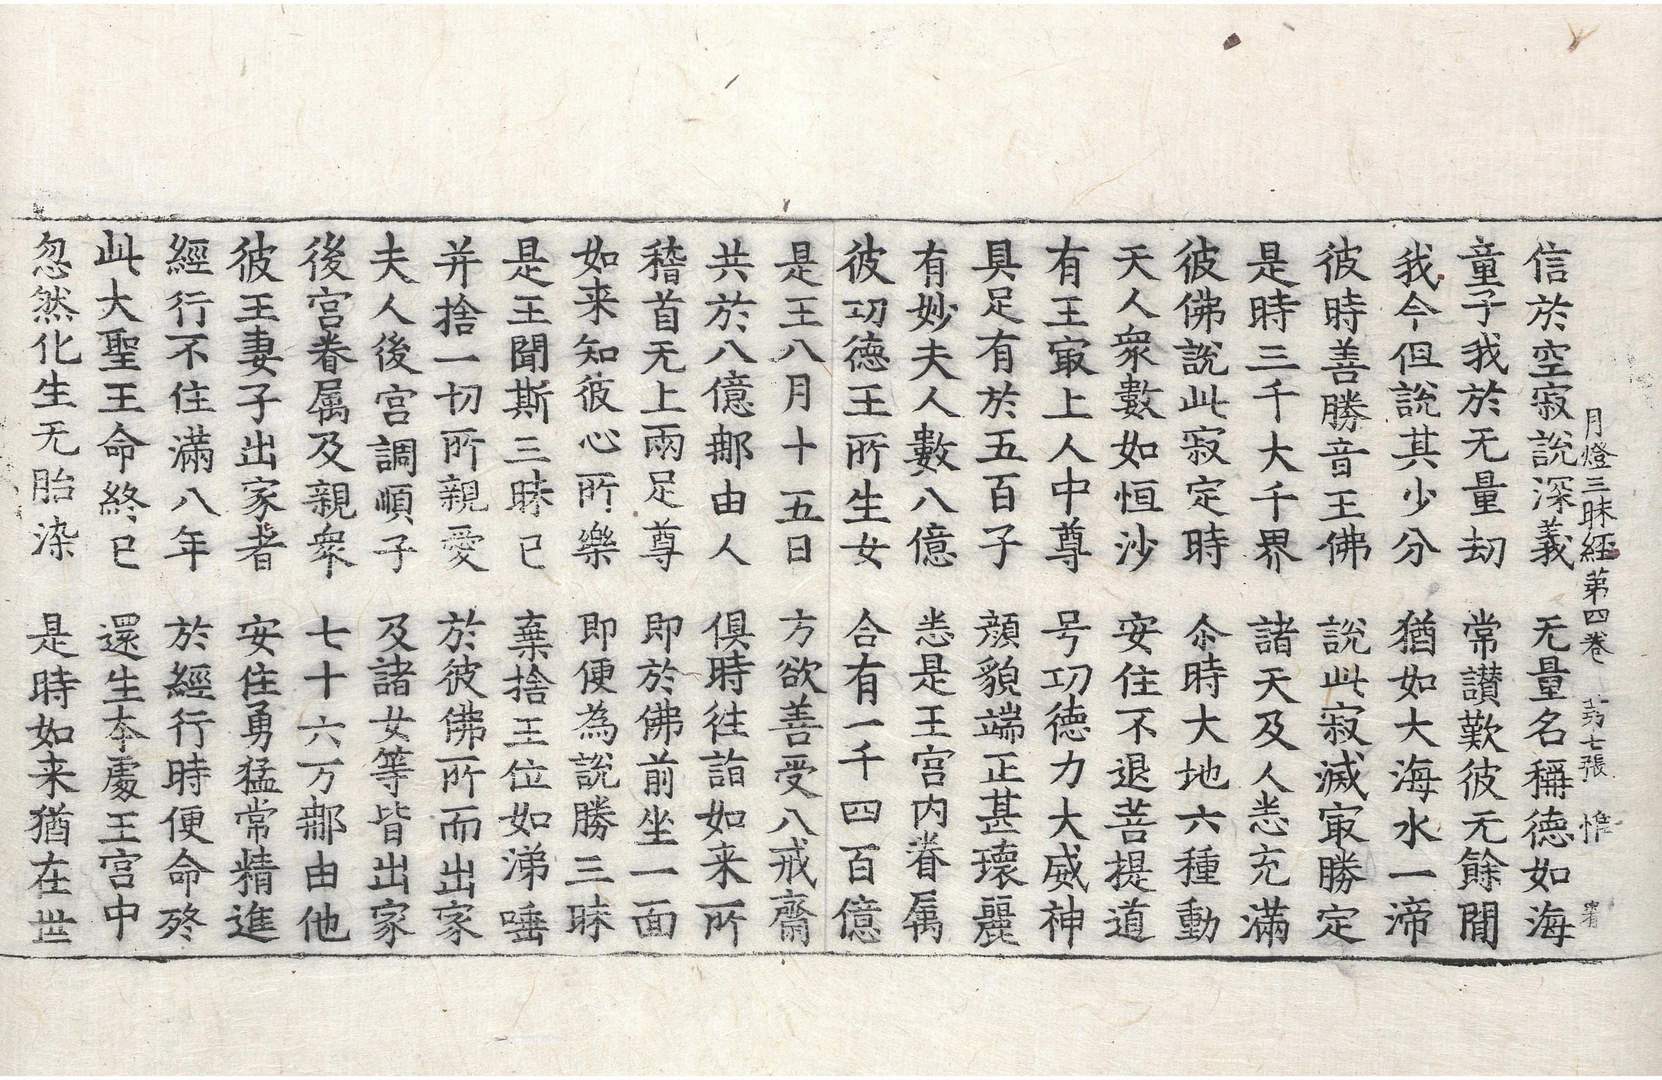 月燈三昧経第四卷 第七張 惟
信於空寂說深義 无量名稱德如海
童子我於无量劫 常讃歎彼无餘聞
我今但說其少分 猶如大海水一渧
彼時善勝音王佛 說此寂滅㝡勝定
是時三千大千界 諸天及人悉充滿
彼佛說此寂定時 尒時大地六種動
天人衆數如恒沙 安住不退菩提道
有王㝡上人中尊 号功德力大威神
具足有於五百子 顔貌端正甚瓌麗
有妙夫人數八億 悉是王宮内眷属
彼功德王所生女 合有一千四百億
是王八月十五日 方欲善受八戒齋
共於八億那由人 俱時往詣如来所
稽首无上兩足尊 即於佛前坐一面
如来知彼心所樂 即便為說勝三昧
是王聞斯三昧已 棄捨王位如涕唾
并捨一切所親愛 於彼佛所而出家
夫人後宮調順子 及諸女等皆出家
後宮眷属及親衆 七十六万那由他
彼王妻子出家者 安住勇猛常精進
經行不住滿八年 於經行時便命終
此大聖王命終已 還生本處王宮中
忽然化生无胎染 是時如来猶在世